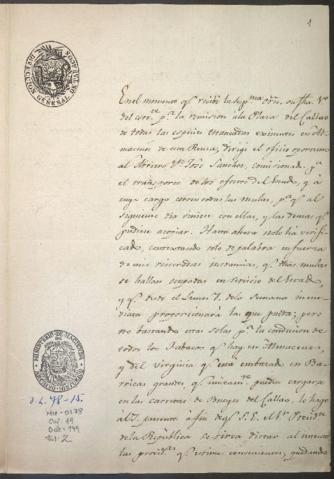 1
En el momento qᵉ recibí la supᵐᵃ orñ. su fha. 1º
del corrᵗᵉ pᵃ la remision a la Plaza del Callao
de todas las especies estancadas existentes en Al-
macenes de esta Renta, dirigí el oficio oportuno
al Arriero Dⁿ José Santos, comisionado pᵃ
el transporte de los efectos del Estado, y á
cuyo cargo corren todas las mulas, pᵃ qᵉ al
siguiente dia viniese con ellas, y las demas qᵉ
pudiese acopiar. Hasta ahora no lo ha verifi-
cado, contestando solo de palabra en fuerza
de mis reiteradas instancias, qᵉ las mulas
se hallan ocupadas en servicio del Estado,
y qᵉ desde el Lunes 7. de la semana inme-
diata proporcionará la que pueda; pero
no bastando estas solas pᵃ la conduccion de
todos los Tabacos qᵉ hay en Almacenes,
y del Virginia qᵉ está embarcado en Ba-
rricas grandes qᵉ unicamᵗᵉ pueden cargarse
en las Carretas de Bueyes del Callao, lo hago
á U. presente á fin de qᵉ S. E. el Sᵒʳ Presidᵗᵉ
de la República se sirva dictar al intento
las providᵃˢ qᵉ estime convenientes; quedando
MINISTERIO DE HACIENDA
O.L. 78-15
MH-0178
Caj. 19
Doc. 149
Fol. 2